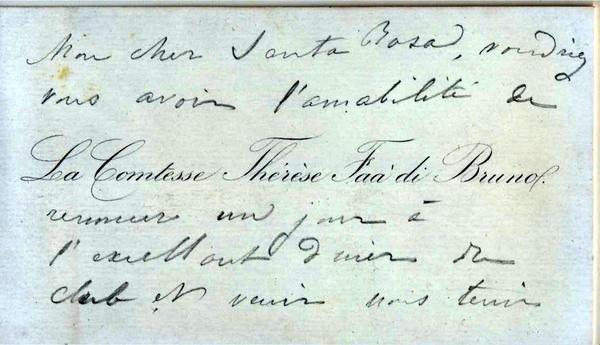 Mon cher Santa Rosa, voudriez
vous avoir l'amabilité de
La Comtesse Thérèse Faà di Bruno
renoncer un jour à
l'excellent diner du
club et venir nous tenir